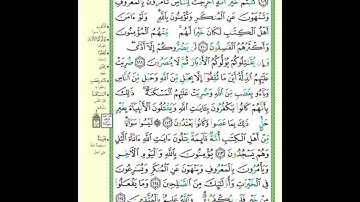 كُنتُمْ خَيْرَ أُمَّةٍ أُخْرِجَتْ لِلنَّاسِ تَأْمُرُونَ بِالْمَعْرُوفِ
وَتَنْهَوْنَ عَنِ الْمُنكَرِ وَتُؤْمِنُونَ بِاللَّهِ ۗ وَلَوْ ءَامَنَ
أَهْلُ الْكِتَٰبِ لَكَانَ خَيْرًا لَّهُم ۚ مِّنْهُمُ الْمُؤْمِنُونَ
وَأَكْثَرُهُمُ الْفَٰسِقُونَ ١١٠ لَن يَضُرُّوكُمْ إِلَّا أَذًى ۖ
وَإِن يُقَٰتِلُوكُمْ يُوَلُّوكُمُ الْأَدْبَارَ ثُمَّ لَا يُنصَرُونَ ١١١ ضُرِبَتْ
عَلَيْهِمُ الذِّلَّةُ أَيْنَ مَا ثُقِفُوا إِلَّا بِحَبْلٍ مِّنَ اللَّهِ وَحَبْلٍ مِّنَ النَّاسِ
وَبَآءُو بِغَضَبٍ مِّنَ اللَّهِ وَضُرِبَتْ عَلَيْهِمُ الْمَسْكَنَةُ ۚ ذَٰلِكَ
بِأَنَّهُمْ كَانُوا يَكْفُرُونَ بِـَٔايَٰتِ اللَّهِ وَيَقْتُلُونَ الْأَنۢبِيَآءَ بِغَيْرِ
حَقٍّ ۚ ذَٰلِكَ بِمَا عَصَوا وَّكَانُوا يَعْتَدُونَ ١١٢ لَيْسُوا سَوَآءً ۗ
مِّنْ أَهْلِ الْكِتَٰبِ أُمَّةٌ قَآئِمَةٌ يَتْلُونَ ءَايَٰتِ اللَّهِ ءَانَآءَ اللَّيْلِ
وَهُمْ يَسْجُدُونَ ١١٣ يُؤْمِنُونَ بِاللَّهِ وَالْيَوْمِ الْءَاخِرِ
وَيَأْمُرُونَ بِالْمَعْرُوفِ وَيَنْهَوْنَ عَنِ الْمُنكَرِ وَيُسَٰرِعُونَ
فِي الْخَيْرَٰتِ وَأُولَٰٓئِكَ مِنَ الصَّٰلِحِينَ ١١٤ وَمَا يَفْعَلُوا
مِنْ خَيْرٍ فَلَن يُكْفَرُوهُ ۗ وَاللَّهُ عَلِيمٌۢ بِالْمُتَّقِينَ ١١٥